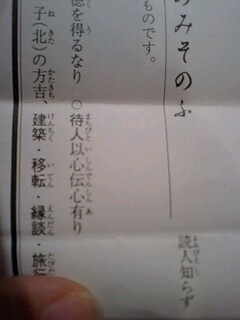 みそのふ
読人知らず
ものです。
徳を得るなり ○待人以心伝心有り
子(北)の方吉、建築・移転・縁談・旅